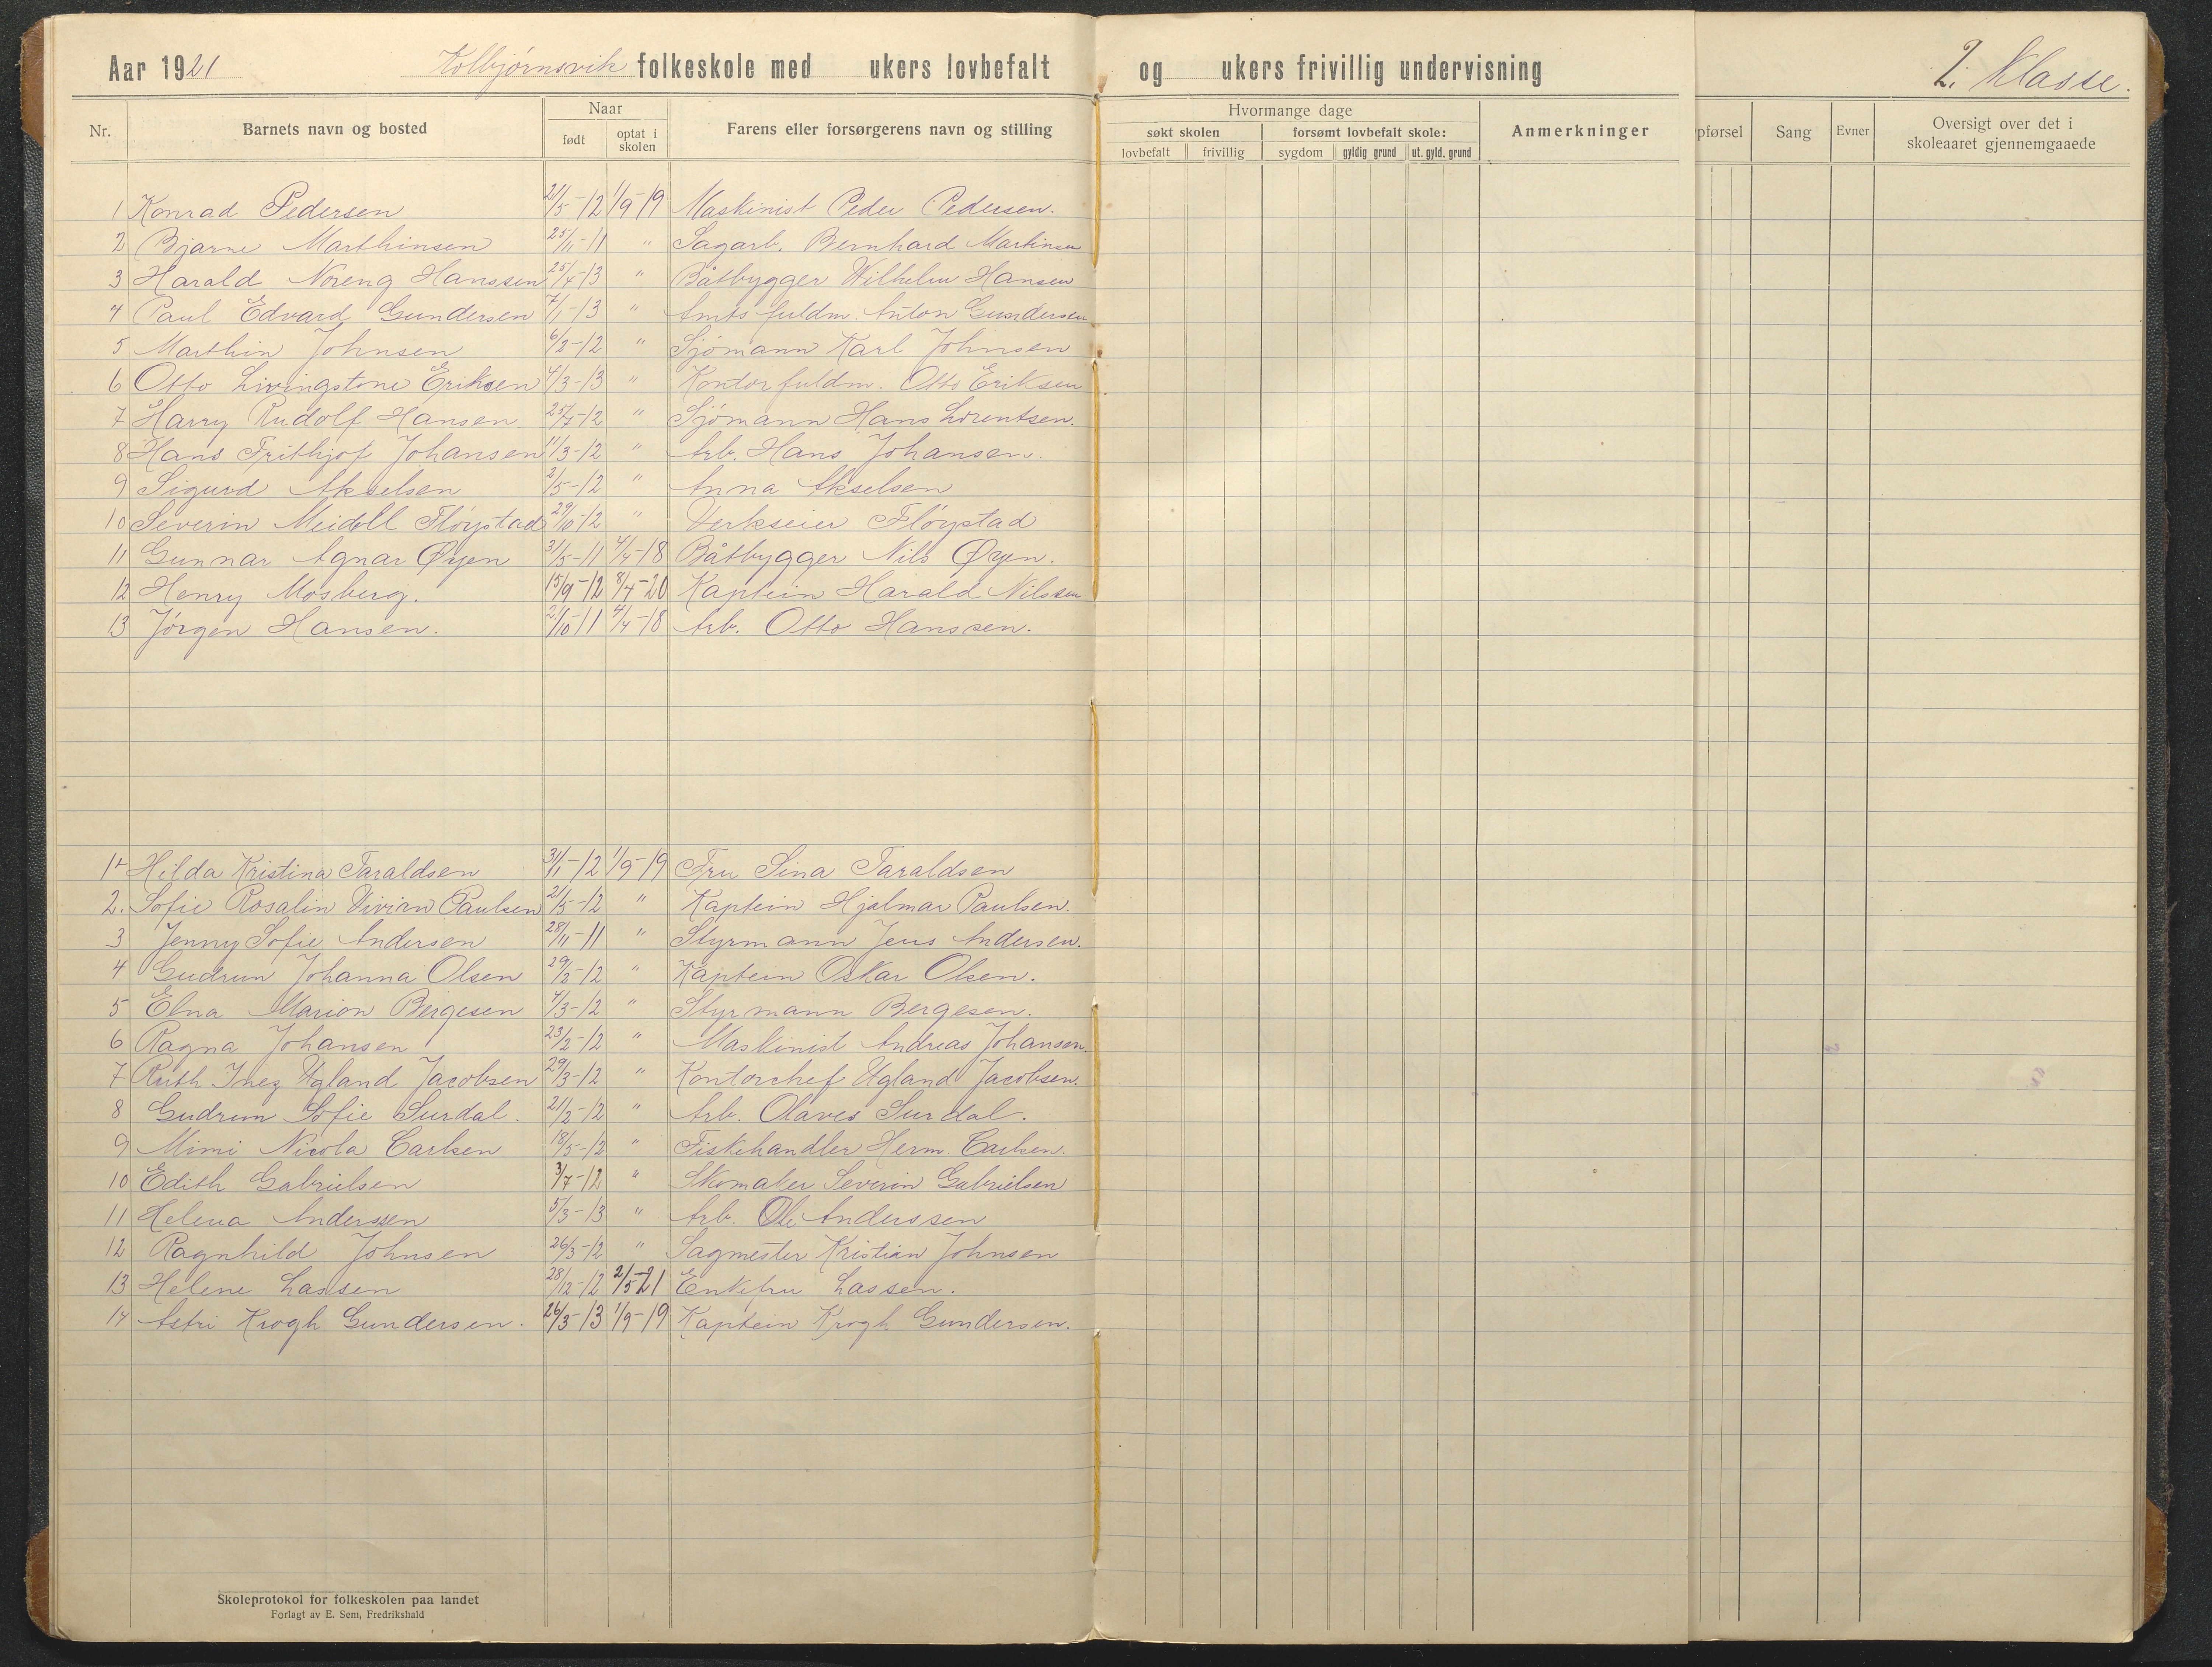 Aar 1921 Kolbjørnsvik folkeskole med ukers lovbefalt og ukers frivillig undervisning 2. Klasse.
Nr. Barnets navn og bosted Naar født optat i skolen Farens eller forsørgerens navn og stilling Hvormange dage søkt skolen lovbefalt frivillig forsømt lovbefalt skole: sygdom gyldig grund ut. gyld. grund Anmerkninger pførsel Sang Evner Oversigt over det i skoleaaret gjennemgaaede
1 Konrad Pedersen 21/5-12 1/9-19 Maskinist Peder Pedersen.
2 Bjarne Marthinsen 25/11-11 " Sagarb. Bernhard Martinsen
3 Harald Noreng Hanssen 25/4-13 " Båtbygger Wilhelm Hansen
4 Paul Edvard Gundersen 7/1-13 " Amts fuldm. Anton Gundersen
5 Marthin Johnsen 6/2-12 " Sjømann Karl Johnsen
6 Otto Livingstone Eriksen 4/3-13 " Kontorfuldm. Otto Eriksen
7 Harry Rudolf Hansen 25/7-12 " Sjømann Hans Lorentsen.
8 Hans Frithjof Johansen 11/3-12 " Arb. Hans Johansen.
9 Sigurd Akselsen 2/5-12 " Anna Akselsen
10 Severin Meidell Fløystad 29/10-12 " Verkseier Fløystad
11 Gunnar Agnar Øyen 31/5-11 4/4-18 Båtbygger Nils Øyen.
12 Henry Mosberg. 15/9-12 8/4-20 Kaptein Harald Nilssen
13 Jørgen Hansen. 2/10-11 4/4-18 Arb. Otto Hanssen.
1 Hilda Kristina Taraldsen 31/1-12 1/9-19 Fru Sina Taraldsen
2. Sofie Rosalin Vivian Paulsen 21/5-12 " Kaptein Hjalmar Paulsen.
3 Jenny Sofie Andersen 28/11-11 " Styrmann Jens Andersen.
4 Gudrun Johanna Olsen 29/2-12 " Kaptein Oskar Olsen.
5 Elna Marion Bergesen 4/3-12 " Styrmann Bergesen.
6 Ragna Johansen 23/2-12 " Maskinist Andreas Johansen.
7 Ruth Inez Ugland Jacobsen 29/3-12 " Kontorchef Ugland Jacobsen.
8 Gudrun Sofie Surdal. 21/2-12 " Arb. Olaves Surdal.
9 Mimi Nicola Carlsen 18/5-12 " Fiskehandler Herm. Carlsen.
10 Edith Gabrielsen 3/7-12 " Skomaker Severin Gabrielsen
11 Helena Anderssen 5/3-13 " Arb. Ole Anderssen
12 Ragnhild Johnsen 26/3-12 " Sagmester Kristian Johnsen
13 Helene Lassen 28/12-12 2/5-21 Enkefru Lassen.
14 Astri Krogh Gundersen. 26/3-13 1/9-19 Kaptein Krogh Gundersen.
Skoleprotokol for folkeskolen paa landet
Forlagt av E. Sem, Fredrikshald